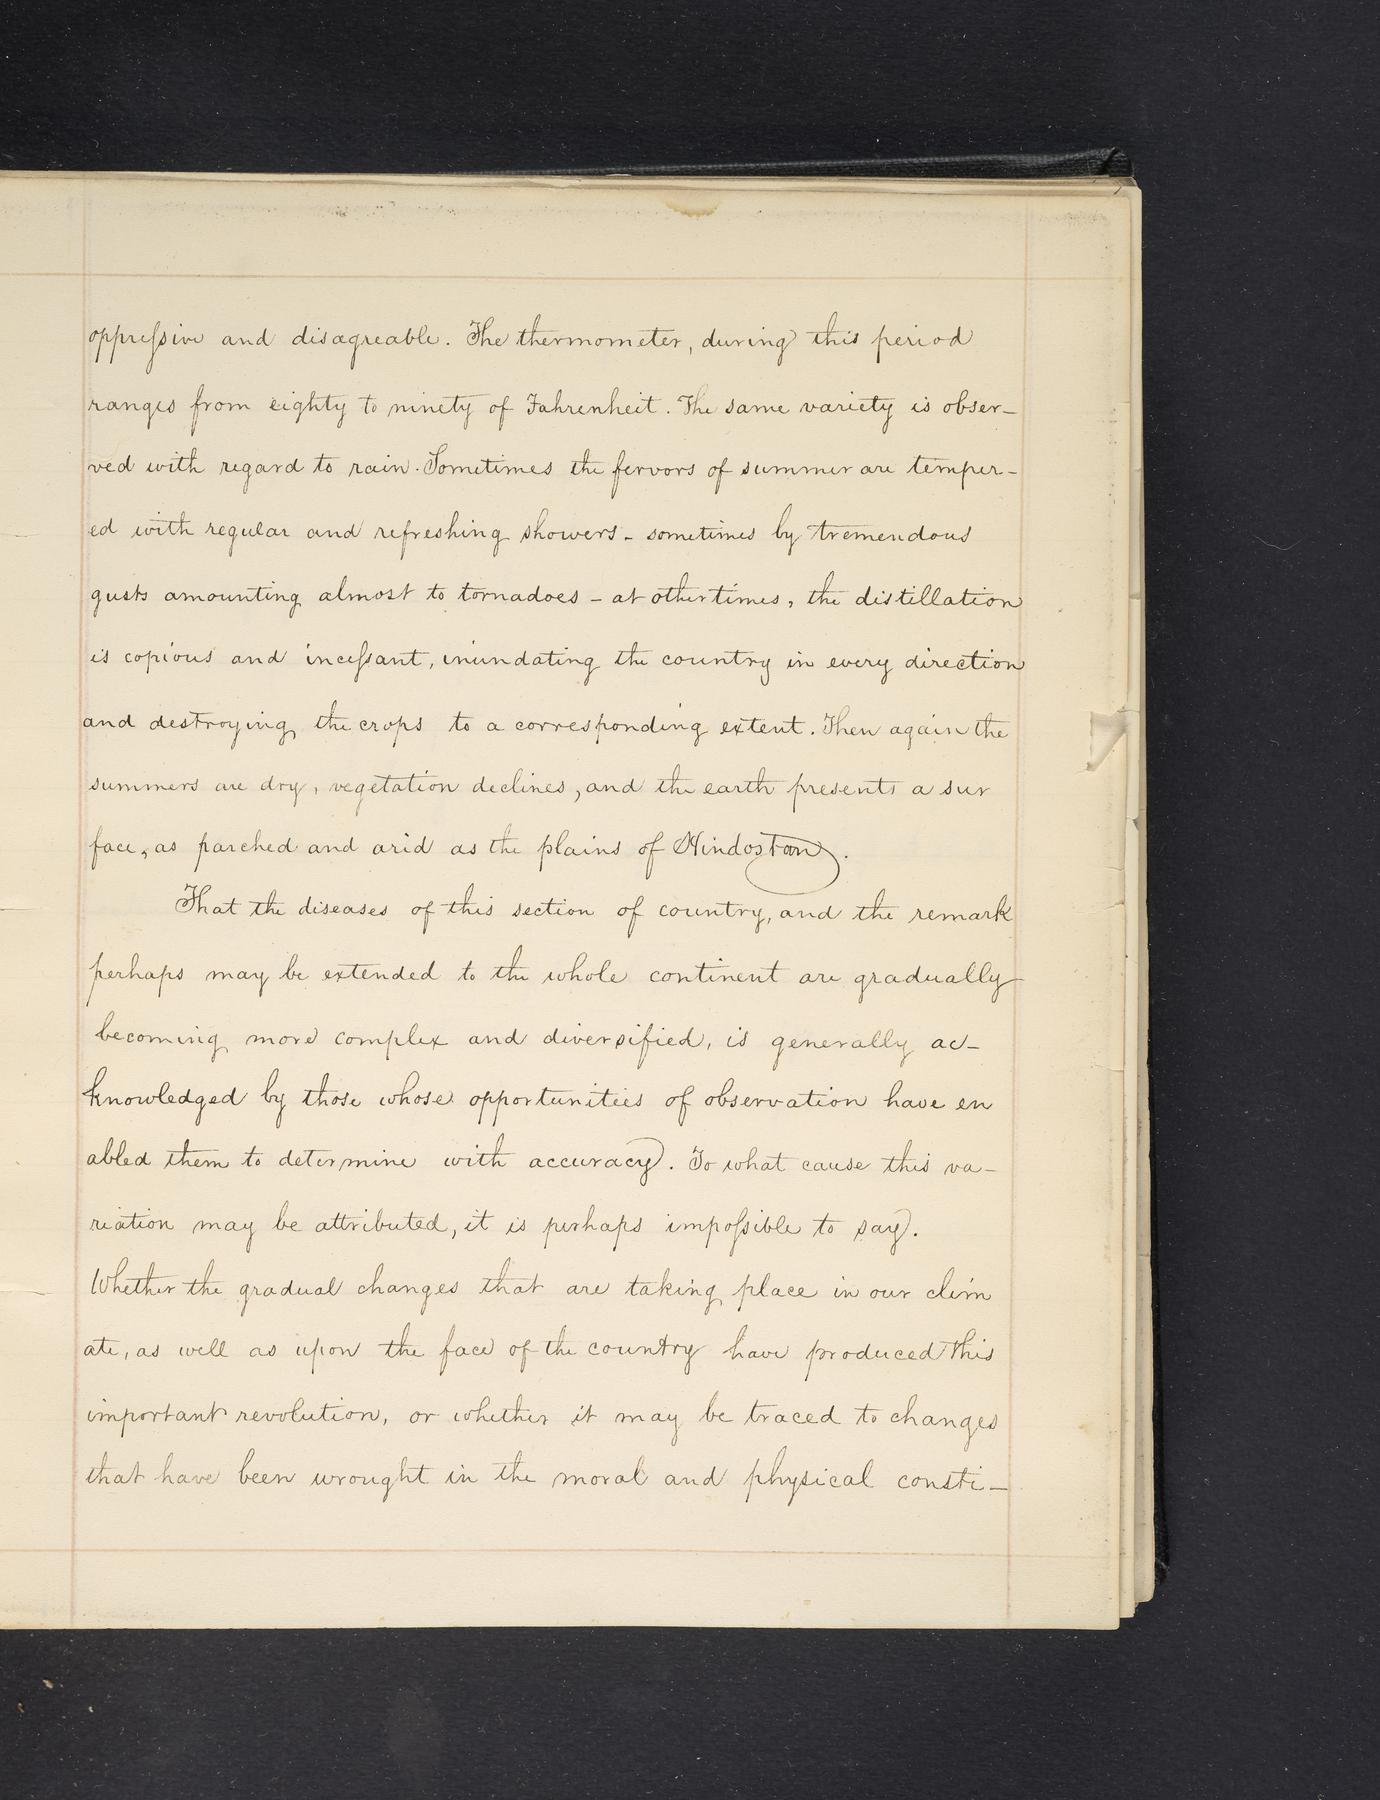 oppressive and disagreable. The thermometer, during this period
ranges from eighty to ninety of Fahrenheit. The same variety is obser-
ved with regard to rain. Sometimes the fervors of summer are temper-
ed with regular and refreshing showers - sometimes by tremendous
gusts amounting almost to tornadoes - at other times, the distillation
is copious and incessant, inundating the country in every direction
and destroying the crops to a corresponding extent. Then again the
summers are dry, vegetation declines, and the earth presents a sur
face, as parched and arid as the plains of Hindostan.
That the diseases of this section of country, and the remark
perhaps may be extended to the whole continent are gradually
becoming more complex and diversified, is generally ac-
knowledged by those whose opportunities of observation have en
abled them to determine with accuracy. To what cause this va-
riation may be attributed, it is perhaps impossible to say.
Whether the gradual changes that are taking place in our clim
ate, as well as upon the face of the country have produced this
important revolution, or whether it may be traced to changes
that have been wrought in the moral and physical consti-